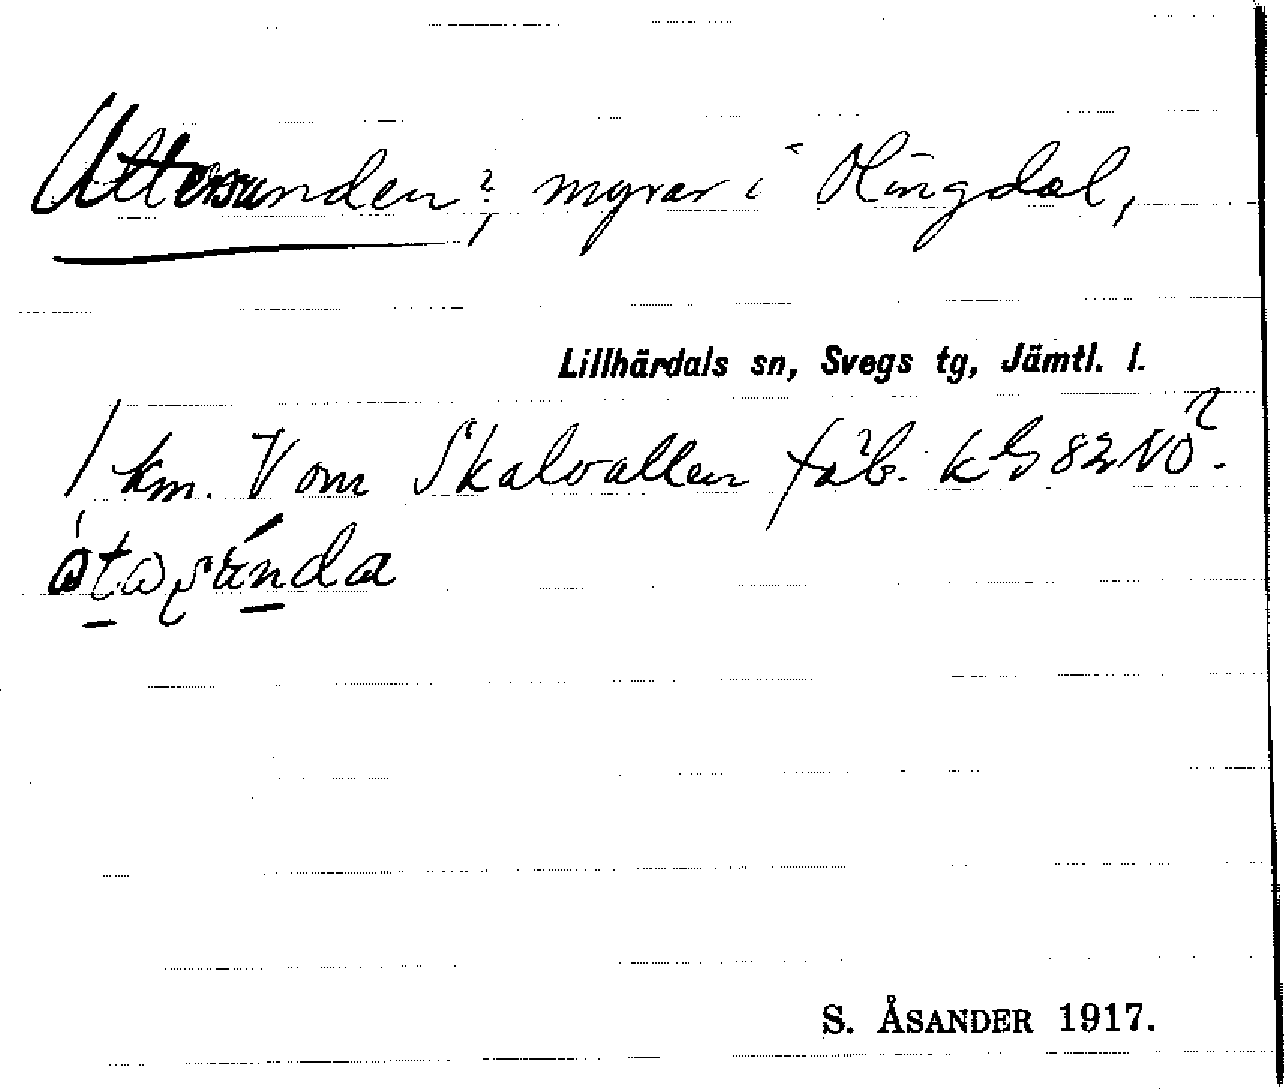 Uttersunden?, myrar i Olingdal,
Lillhärdals sn, Svegs tg, Jämtl. l.
1 km. V om Skalvallen fäb. k G 82 NO.
S. ÅSANDER 1917.